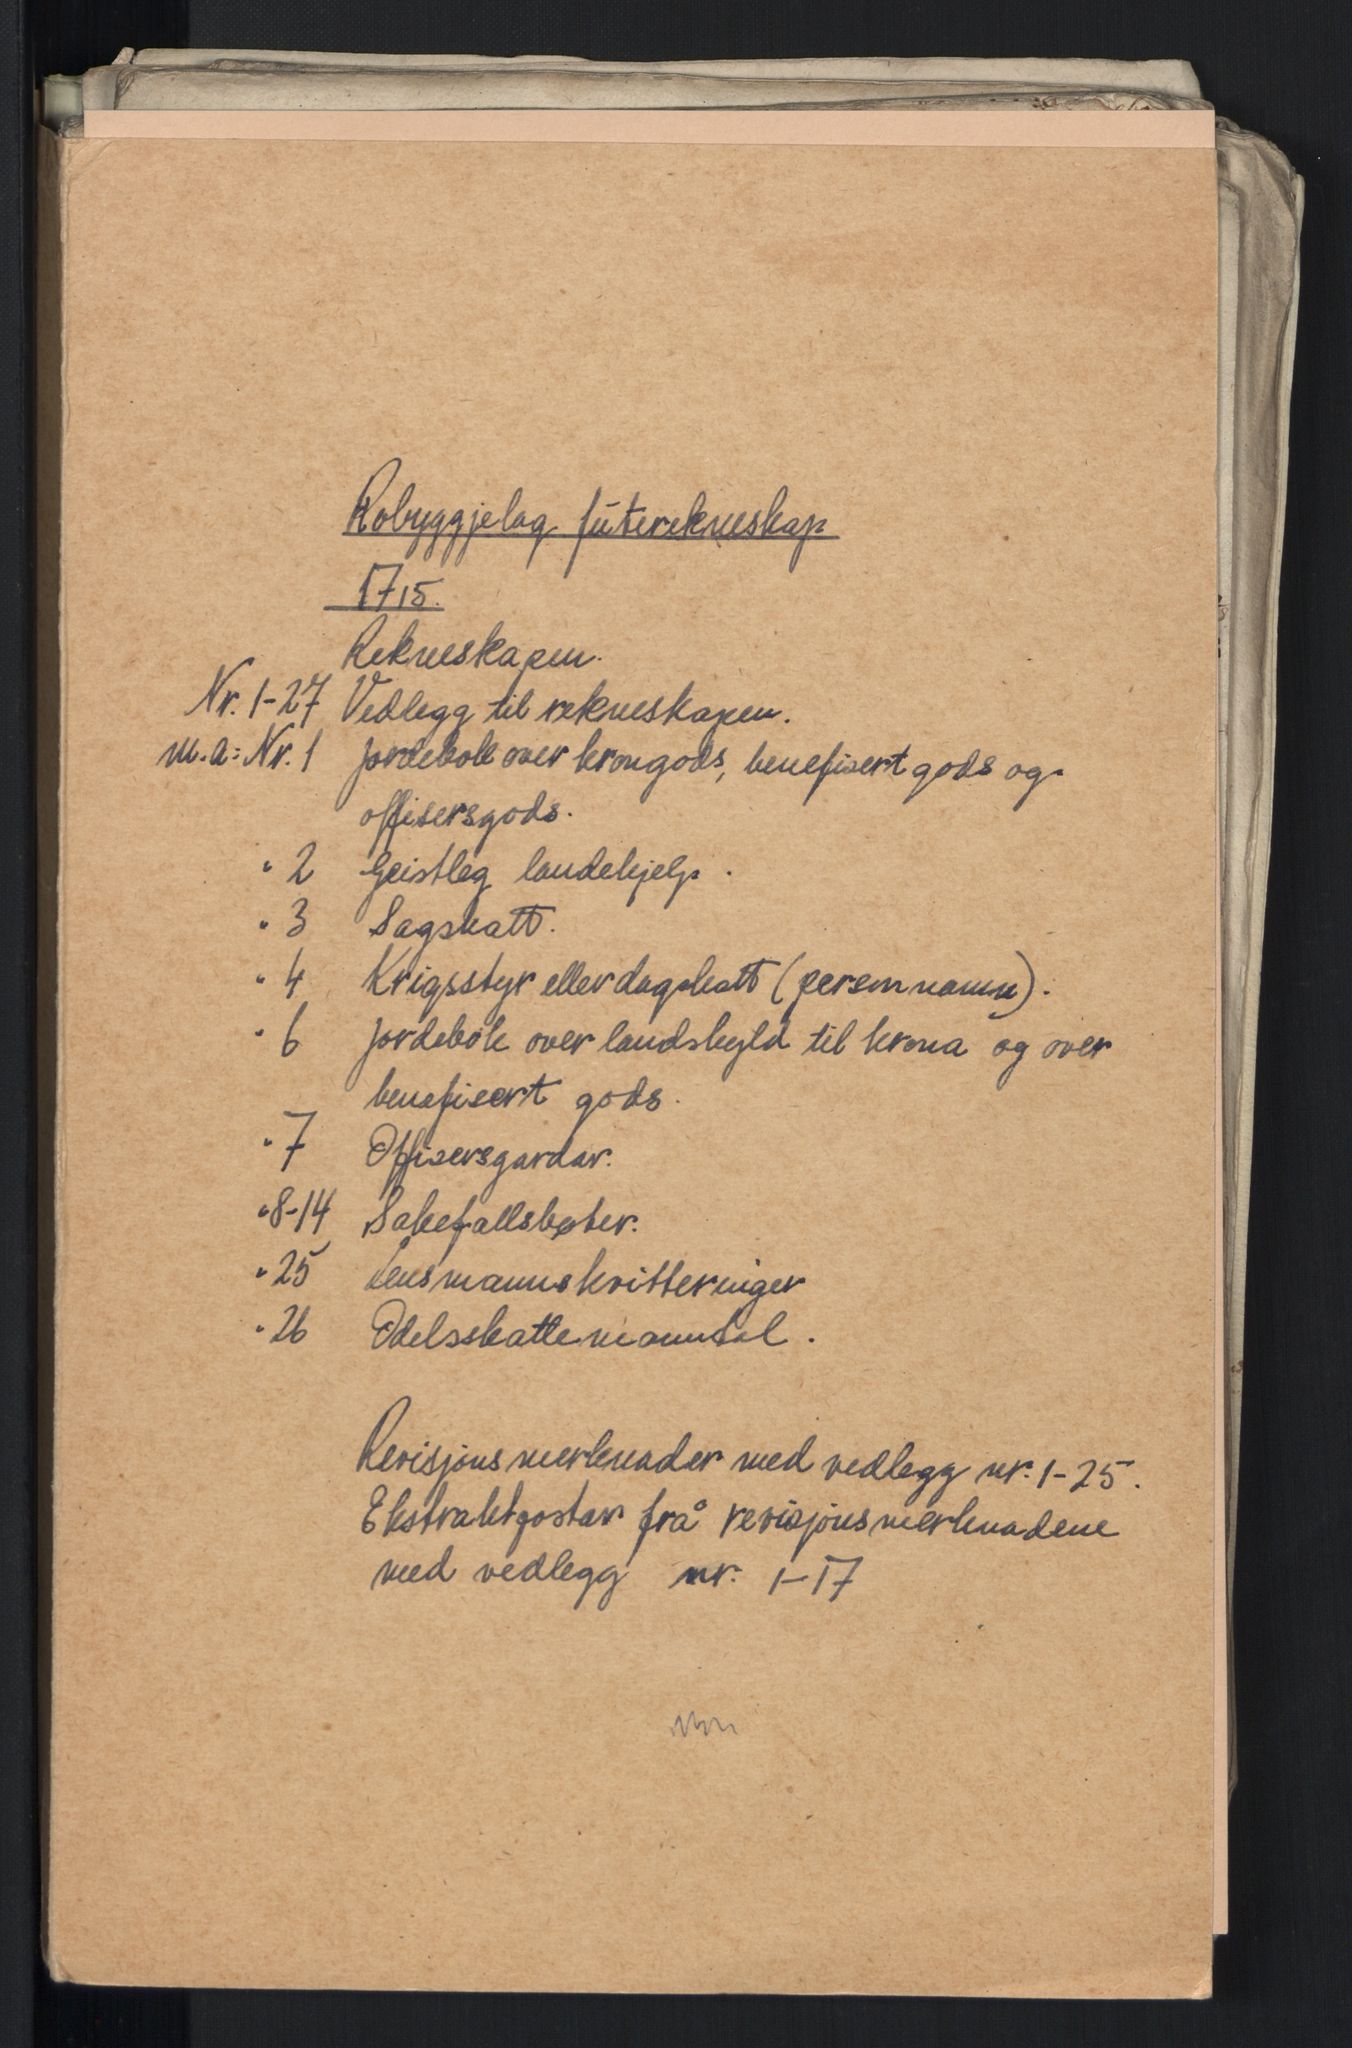 Robyggjelag futerekneskap
1715.
Rekneskapen.
Nr. 1-27 Vedlegg til rekneskapen.
m.a: Nr. 1 Jordebok over krongods, benefisert gods og
offisersgods.
" 2 Geistleg landehjelp.
" 3 Sagskatt.
" 4 Krigsstyr eller dagskatt (personnamn).
" 6 Jordebok over landskyld til krona og over
benefisert gods.
" 7 Offisersgardar.
" 8-14 Sakefallsbøter.
" 25 Lensmannskvitteringer
" 26 Odelsskattemanntal.
Revisjonsmerknader med vedlegg nr. 1-25.
Ekstraktpostar frå revisjonsmerknadene
med vedlegg nr. 1-17